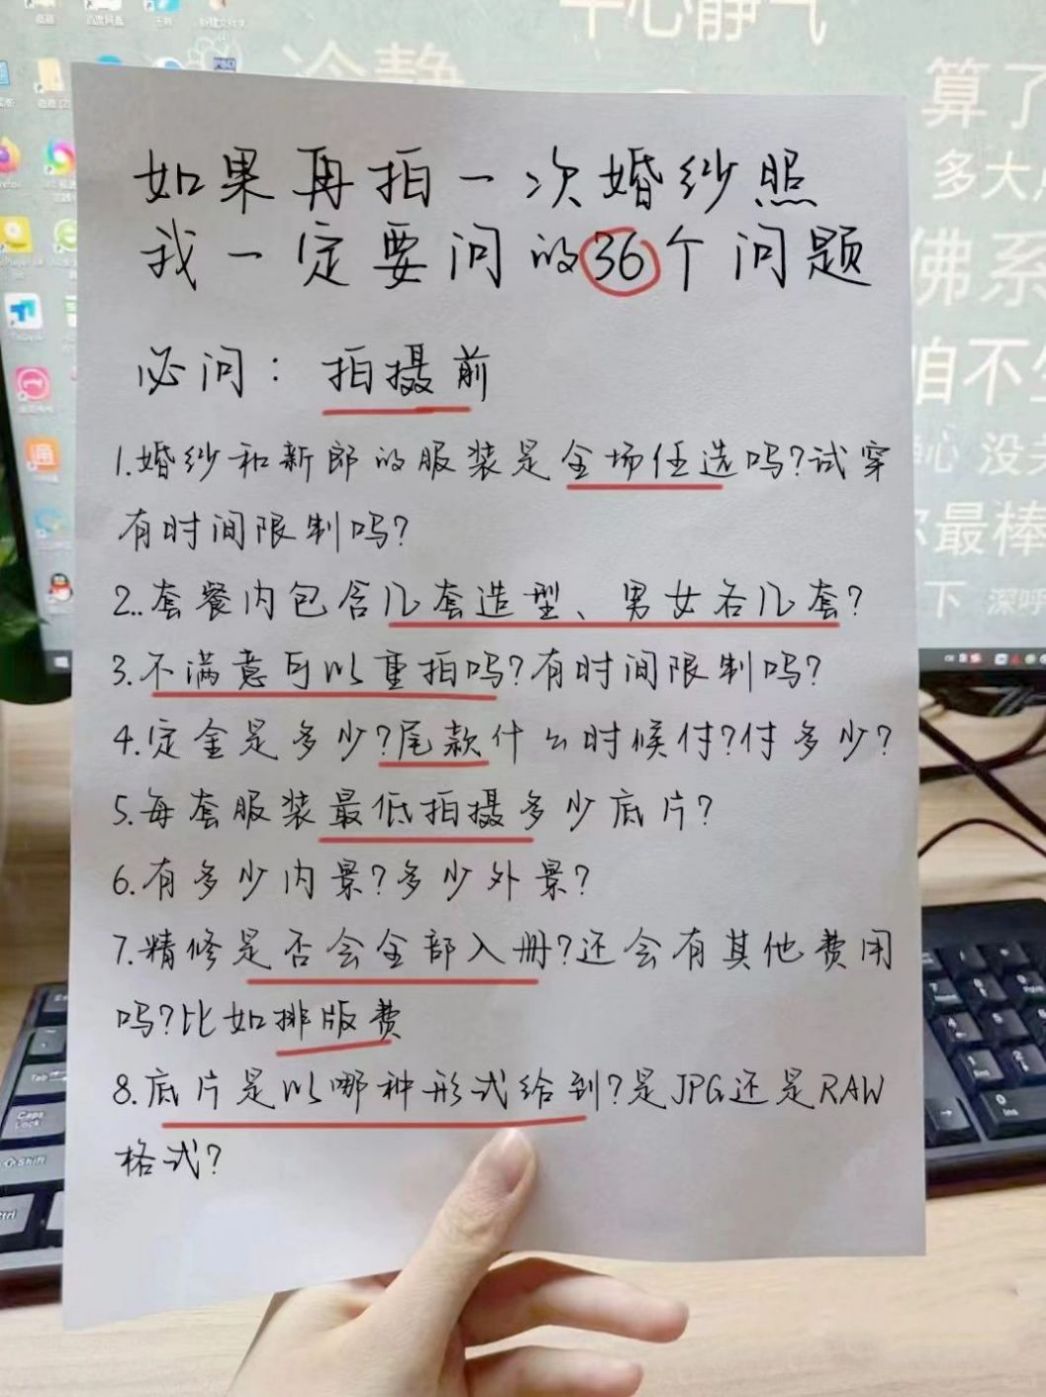 平心静气
冷静
算了
佛系
最棒
下
深呼
如果再拍一次婚纱照
我一定要问的36个问题
必问：拍摄前
1.婚纱和新郎的服装是全场任选吗?试穿
有时间限制吗?
2..套餐内包含几套造型、男女各几套?
3.不满意可以重拍吗?有时间限制吗?
4.定金是多少?尾款什么时候付?付多少?
5.每套服装最低拍摄多少底片?
6.有多少内景?多少外景?
7.精修是否会全部入册?还会有其他费用
吗?比如排版费
8.底片是以哪种形式给到?是JPG还是RAW
格式?